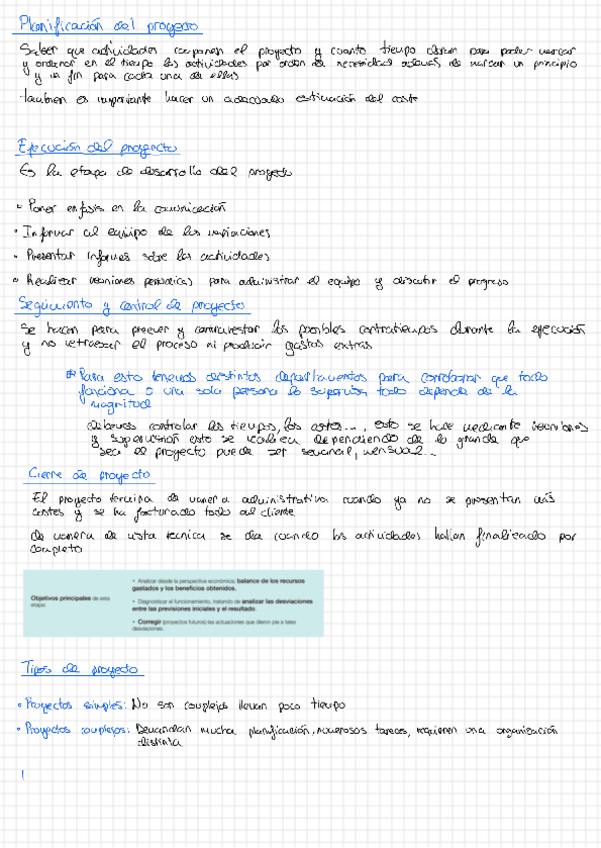 Planificación del proyecto
Saber que actividades componen el proyecto y cuanto tiempo duran para poder marcar
y ordenar en el tiempo las actividades por orden de necesidad además de marcar un principio
y un fin para cada una de ellas
también es importante hacer un adecuado estimación del coste
Ejecución del proyecto
Es la etapa de desarrollo del proyecto
• Poner enfasis en la comunicación
• Informar al equipo de las variaciones
• Presentar informes sobre las actividades
• Realizar reuniones periodicas para administrar el equipo y discutir el progreso
Seguimiento y control de proyecto
Se hacen para preveer y contrarrestar los posibles contratiempos durante la ejecución
y no retrasar el proceso ni producir gastos extras
Para esto tenemos distintos departamentos para corroborar que todo
funciona o una sola persona lo supervisa todo depende de la
magnitud
debemos controlar los tiempos, los costes..., esto se hace mediante reuniones
y supervisión esto se realiza dependiendo de lo grande que
sea el proyecto puede ser semanal, mensual...
Cierre de proyecto
El proyecto termina de manera administrativa cuando ya no se presentan más
costes y se ha facturado todo al cliente
de manera de vista tecnica se da cuando las actividades hallan finalizado por
completo
• Analizar desde la perspectiva económica, balance de los recursos
gastados y los beneficios obtenidos.
Objetivos principales de esta
etapa
• Diagnosticar el funcionamiento, tratando de analizar las desviaciones
entre las previsiones iniciales y el resultado.
• Corregir (proyectos futuros) las actuaciones que dieron pie a tales
desviaciones.
Tipos de proyecto
• Proyectos simples: No son complejos llevan poco tiempo
• Proyectos complejos: Demandan mucha planificación, numerosos tareas, requieren una organización
distinta